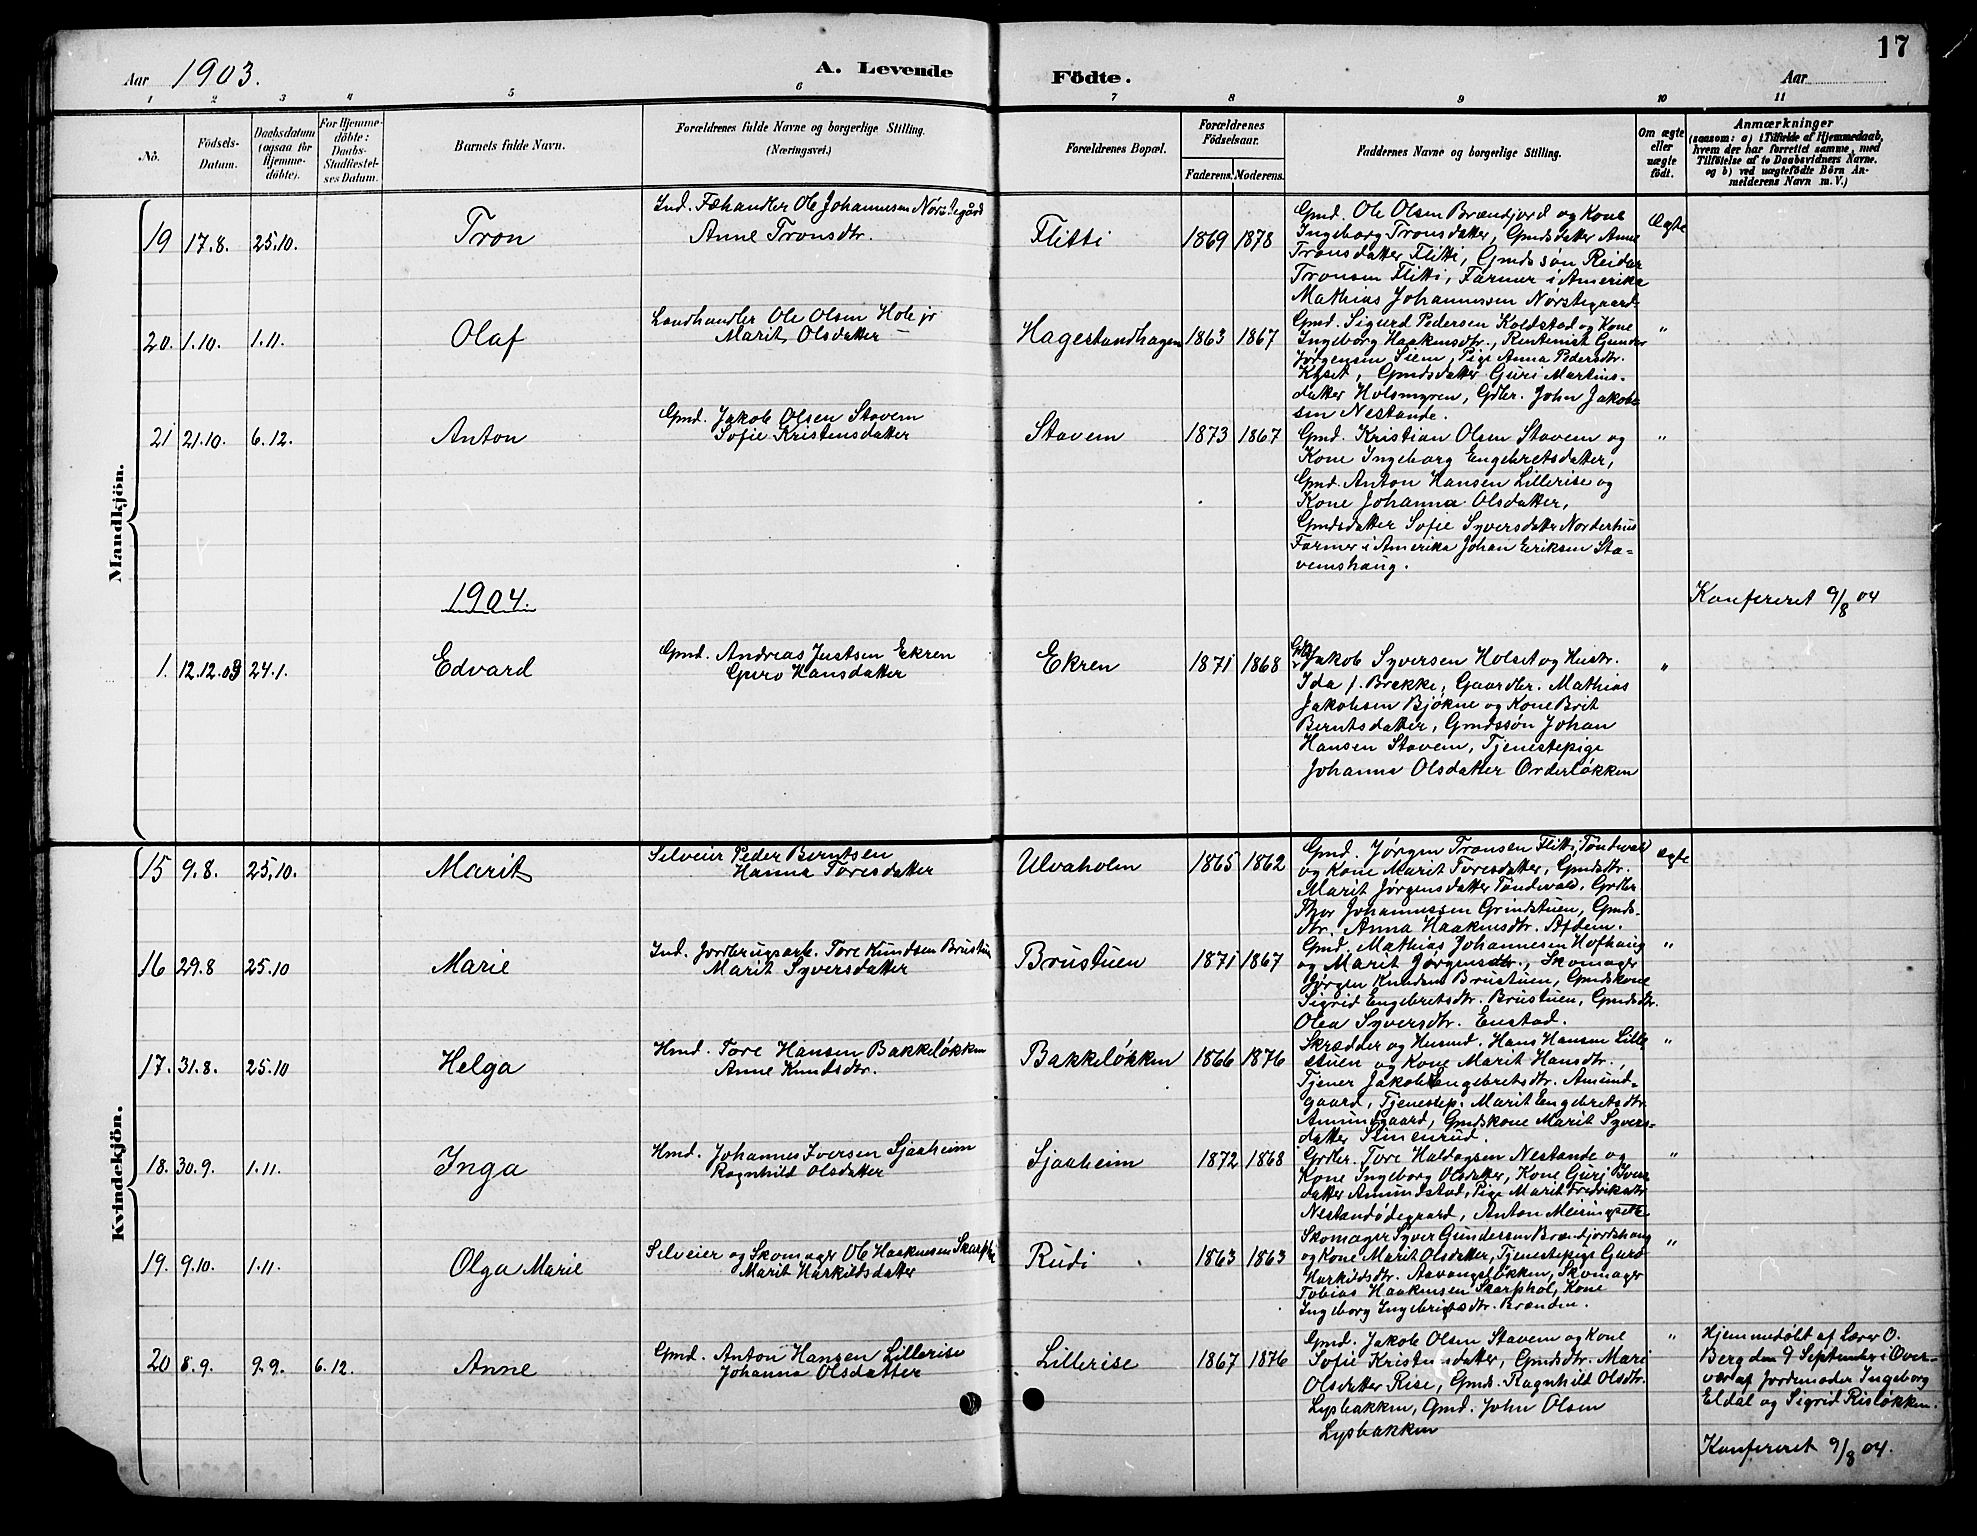 17
Aar 1903.
A. Levende
Födte.
Aar
1 2 3 4 5 6 7 8 9 10 11
No.
Födsels-
Datum.
Daabsdatum
(ogsaa for
Hjemme-
döbte).
For Hjemme-
döbte:
Daabs-
Stadfæstel-
ses Datum.
Barnets fulde Navn.
Forældrenes fulde Navne og borgerlige Stilling.
(Næringsvei.)
Forældrenes Bopæl.
Forældrenes
Födselsaar.
Faderens. Moderens.
Faddernes Navne og borgerlige Stilling.
Om ægte
eller
uægte
födt.
Anmærkninger
(saasom: a) i Tilfælde af Hjemmedaab,
hvem der har forrettet samme, med
Tilföielse af to Daabsvidners Navne.
og b) ved uægtefödte Börn An-
melderens Navn m. V.)
Mandkjön.
19 17.8. 25.10. Tron
Ind. Fæhandler Ole Johannesen Norstegård
Anne Tronsdtr.
Flitti 1869 1878
Gmd. Ole Olsen Brændjord og Kone
Ingeborg Tronsdatter, Gmdsdatter Anne
Tronsdatter Flitti, Gmdssøn Reidar
Tronsen Flitti, Farmer i Amerika
Mathias Johannessen Norstegaard.
Ægte
20. 1.10. 1.11. Olaf
Landhandler Ole Olsen Hole jr
Marit Olsdatter
Hagestandhagen 1863 1867
Gmd. Sigurd Pedersen Koldstad og Kone
Ingeborg Haakensdtr., Rentenist Gunder
Jørgensen Siem, Pige Anna Pedersdtr.
Gmdsdatter Guri Martins-
datter Holsmyren, Grdbr. John Jakob-
sen Nestande.
"
21 21.10. 6.12. Anton
Gmd. Jakob Olsen Stavem
Sofie Kristensdatter
Stavem 1873 1867
Gmd. Kristian Olsen Stavem og
Kone Ingeborg Engebretsdatter,
Gmd. Anton Hansen Lillerise og
Kone Johanna Olsdatter,
Gmdsdatter Sofie Syversdatter Norderhus
Farmer i Amerika Johan Eriksen Sta-
vemshaug.
"
1904.
Konfereret 9/8 04
1. 12.12.03 24.1. Edvard
Gmd. Andreas Justsen Ekren
Guro Hansdatter
Ekren 1871 1868
Jakob Syversen Holset og Hustr.
Ida f. Brekke, Gaardbr. Mathias
Jakobsen Bjøkne og Kone Brit
Berntsdatter, Gmdssøn Johan
Hansen Stavem, Tjenestepige
Johanna Olsdatter Orderløkken
"
Kvindekjön.
15 9.8. 25.10. Marit
Selveier Peder Berntsen
Hanna Toresdatter
Ulvaholen 1865 1862
Gmd. Jørgen Tronsen Flitti, Tøndevold
og Kone Marit Toresdatter, Gmdsdtr.
Marit Jørgensdatter Tøndevold, Grdbr.
Thor Johannessen Grindstuen, Gmds-
dtr. Anna Haakensdtr. Aftem.
ægte
16 29.8 25.10 Marie
Ind. Jordbrugsarb. Tore Knudsen Brustuen
Marit Syversdatter
Brustuen 1871 1867
Gmd. Mathias Johannesen Hofhaug
og Marit Jørgensdtr., Skomager
Jørgen Knudsen Brustuen, Gmdskone
Sigrid Engebretsdtr. Brustuen, Gmdsdtr.
Olea Syversdtr. Enstad.
"
17. 31.8. 25.10 Helga
Hmd. Tore Hansen Bakkeløkken
Anne Knudsdtr.
Bakkeløkken 1866 1876
Skrædder og Husmd. Hans Hansen Lille-
stuen og Kone Marit Hansdtr.,
Tjener Jakob Engebretsdtr. Amund-
gaard, Tjenestep. Marit Engebretsdtr.
Amundgaard, Gmdskone Marit Syvers-
datter Slinerud.
"
18. 30.9. 1.11. Inga
Hmd. Johannes Iversen Sjaaheim
Ragnhild Olsdatter
Sjaaheim 1872 1868
Grdbr. Tore Haldogsen Nestande og
Kone Ingeborg Olsdatter, Kone Guri Ivers-
datter Amundstad, Pige Marit Fredriksdtr.
Nestandødegaard, Anton
"
19. 9.10. 1.11. Olga Marie
Selveier og Skomager Ole Haakensen Skarphol
Marit Harkildsdatter
Rudi 1863 1863
Skomager Syver Gundersen Brændjordshaug
og Kone Marit Olsdatter, Tjenestepige Guro
Harkildsdtr. Aavangsløkken, Skomager
Tobias Haakensen Skarphol, Kone
Ingeborg Ingebrigtsdtr. Brænden.
"
20 8.9. 9.9. 6.12. Anne
Gmd. Anton Hansen Lillerise
Johanna Olsdatter
Lillerise 1867 1876
Gmd. Jakob Olsen Stavem og Kone
Sofie Kristensdatter, Gmdsdtr. Mari
Olsdatter Rise, Gmds. Ragnhild Olsdtr.
Lysbakken, Gmd. John Olsen
Lysbakken
"
Hjemmedøbt af Lærer O.
Berg den 9 September i Over-
vær af Jordemoder Ingeborg
Eldal og Sigrid Risløkken.
Konfereret 9/8 04.